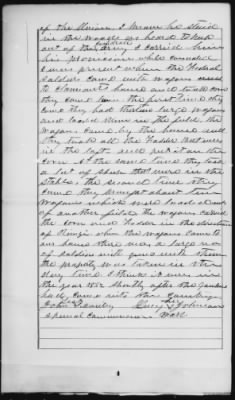 of the
in the woods as heard to keep
out of the army I carried him
his provisions while concealed
I was present when the Federal
soldiers came with wagons
to Claimant's house and took corn
they came twice the first time they
came they had that time large wagons
and loaded them in the field the
wagons came by the house and
they took all the fodder that was
in the loft and put it on the
corn at the same time they took
a lot of that were in the
stable, the second time they
came they brought about four
wagons which were loaded out
of another field the wagons carried
the corn and fodder in the direction
of when the wagons came to
our house there was a large no
of soldiers with guns with them
the property was taken in the
day time I think it was in
the year 1862 shortly after the yankees
had come into the country
John her Johnson
Special Commissioner mark